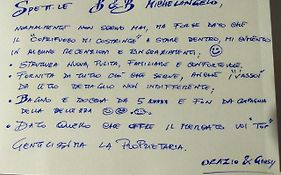 SPETT.LE B&B MICHELANGELO,
NORMALMENTE NON SCRIVO MAI, MA FORSE DATO CHE
IL "COPRIFUOCO MI COSTRINGE" A STARE DENTRO, MI CIMENTO
IN ALCUNE RECENSIONI E RINGRAZIAMENTI;
• STRUTTURA NUOVA, PULITA, FAMILIARE E CONFORTEVOLE.
• FORNITA DI TUTTO CIO' CHE SERVE, ANCHE I "VASSOI"
DA LETTO DETTAGLIO NON INDIFFERENTE;
• BAGNO E DOCCIA DA 5 E FIN DA
DELLA BELLEZZA
• DATO QUELLO CHE OFFRE IL MERCATO VOI "TOP"
GENTILISSIMA LA PROPRIETARIA.
ORAZIO & GIUSY